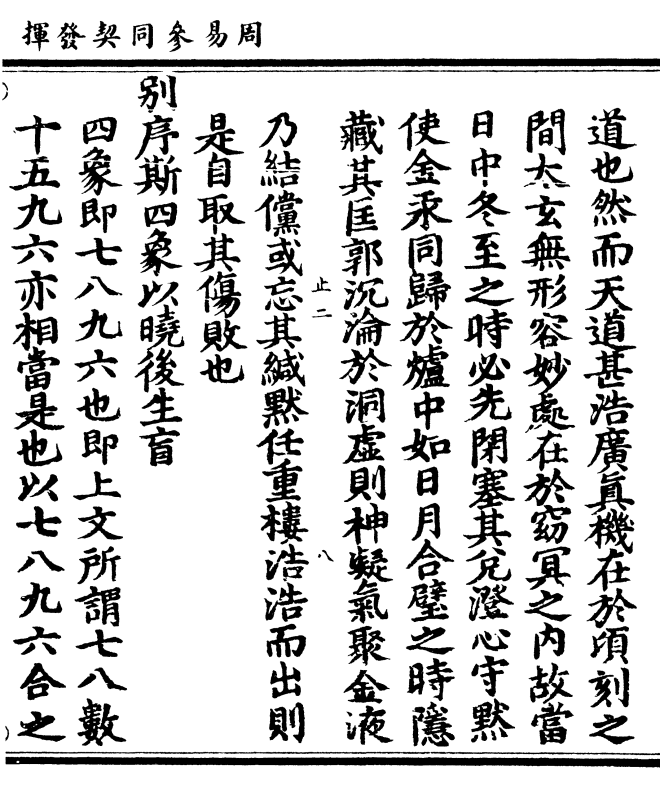 周易參同契發揮
道也然而天道甚浩廣真機在於頃刻之
間太玄無形容妙處在於窈冥之内故當
日中冬至之時必先閉塞其兌澄心守默
使金汞同歸於爐中如日月合璧之時隱
藏其匡郭沉淪於洞虛則神凝氣聚金液
止二 八
乃結儻或忘其緘默任重樓浩浩而出則
是自取其傷敗也
别序斯四象以曉後生盲
四象即七八九六也即上文所謂七八數
十五九六亦相當是也以七八九六合之